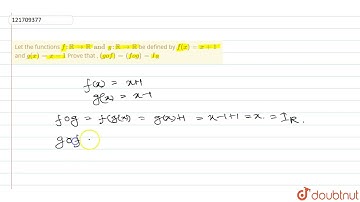 121709377
Let the functions f: ℝ → ℝ and g: ℝ → ℝ be defined by f(x) = x + 1
and g(x) = x − 1 Prove that . (gof) = (fog) = I_R
f(x) = x+1
g(x) = x-1
fog = f(g(x)) = g(x)+1 = x-1+1 = x. = I_R.
gof
doubtnut